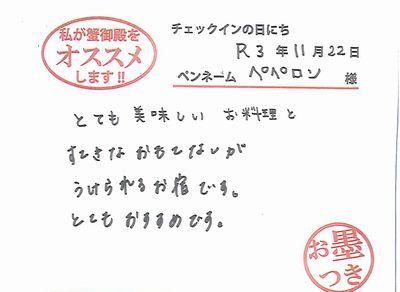 私が蟹御殿を
オススメ
します!!
チェックインの日にち
R3年11月22日
ペンネーム ペペロン 様
とても 美味しい お料理と
すてきな おもてなしが
うけられるお宿です。
とてもおすすめです。
お墨
つき